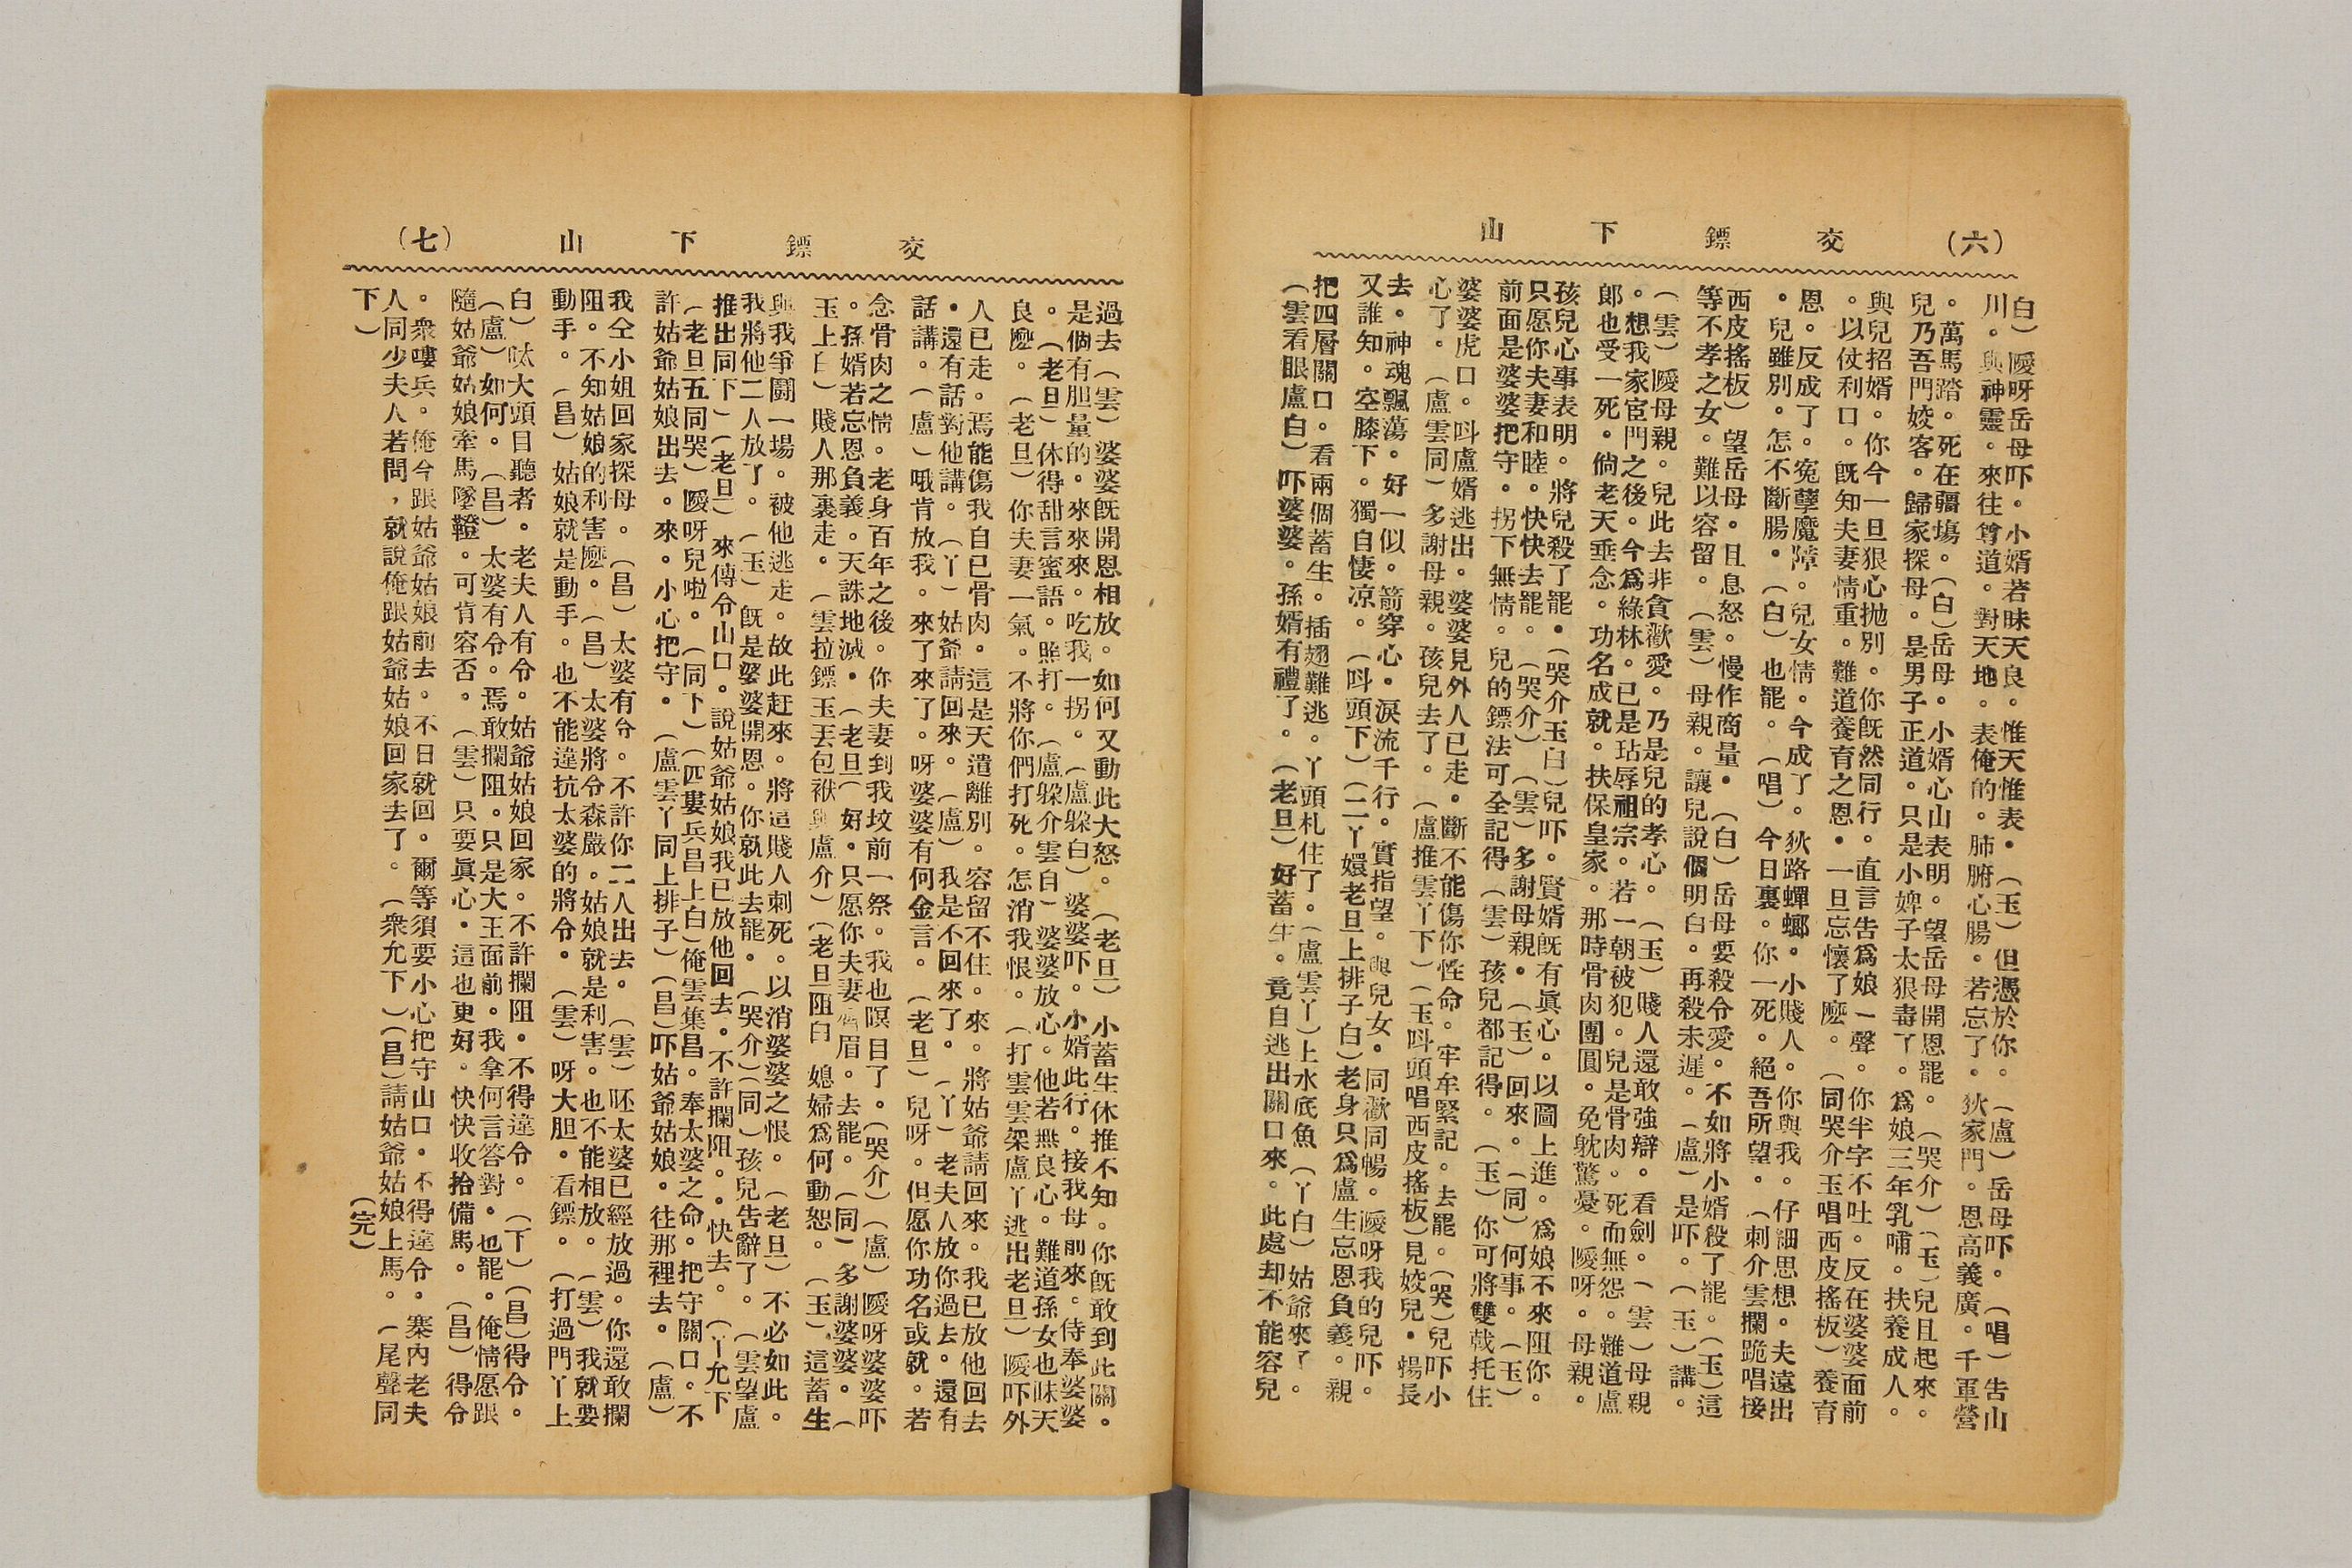 (六) 交鏢下山
白）嗳呀岳母吓。小婿若昧天良。惟天惟表。（玉）但憑於你。（盧）岳母吓。（唱）告山
川。與神靈。來往尊道。對天地。表俺的。肺腑心腸。若忘了。狄家門。恩高義廣。千軍營
。萬馬踏。死在疆塲。（白）岳母。小婿心山表明。望岳母開恩罷。（哭介）（玉）兒且起來。
兒乃吾門姣客。歸家探母。是男子正道。只是小婢子太狠毒了。爲娘三年乳哺。扶養成人。
與兒招婿。你今一旦狠心抛別。你旣然同行。直言告爲娘一聲。你半字不吐。反在婆婆面前
。以仗利口。旣知夫妻情重。難道養育之恩。一旦忘懷了麽。（同哭介玉唱西皮搖板）養育
恩。反成了。寃孽魔障。兒女情。今成了。狄路蟬螂。小賤人。你與我。仔細思想。夫遠出
。兒雖別。怎不斷腸。（白）也罷。（唱）今日裏。你一死。絕吾所望。（刺介雲攔跪唱接
西皮搖板）望岳母。且息怒。慢作商量。（白）岳母要殺令愛。不如將小婿殺了罷。（玉）這
等不孝之女。難以容留。（雲）母親。讓兒說個明白。再殺未遲。（盧）是吓。（玉）講。
（雲）嗳母親。兒此去非貪歡愛。乃是兒的孝心。（玉）賤人還敢強辯。看劍。（雲）母親
。想我家宦門之後。今爲綠林。已是玷辱祖宗。若一朝被犯。兒是骨肉。死而無怨。難道盧
郎也受一死。倘老天垂念。功名成就。扶保皇家。那時骨肉團圓。免躭驚憂。嗳呀。母親。
孩兒心事表明。將兒殺了罷。（哭介玉白）兒吓。賢婿旣有眞心。以圖上進。爲娘不來阻你。
只愿你夫妻和睦。快快去罷。（哭介）（雲）多謝母親。（玉）回來。（同）何事。（玉）
前面是婆婆把守。拐下無情。兒的鏢法可全記得（雲）孩兒都記得。（玉）你可將雙戟托住
婆婆虎口。呌盧婿逃出。婆婆見外人已走。斷不能傷你性命。牢牟緊記。去罷。（哭）兒吓小
心了。（盧雲同）多謝母親。孩兒去了。（盧推雲丫下）（玉呌頭唱西皮搖板）見姣兒。揚長
去。神魂飄蕩。好一似。箭穿心。淚流千行。實指望。與兒女。同歡同暢。嗳呀我的兒吓。
又誰知。空膝下。獨自悽凉。（呌頭下）（二丫嬛老旦上排子白）老身只爲盧生忘恩負義。親
把四層關口。看兩個蓄生。插翅難逃。丫頭札住了。（盧雲丫）上水底魚（丫白）姑爺來了。
（雲看眼盧白）吓婆婆。孫婿有禮了。（老旦）好蓄生。竟自逃出關口來。此處却不能容兒
(七) 交鏢下山
過去（雲）婆婆旣開恩相放。如何又動此大怒。（老旦）小蓄生休推不知。你旣敢到此關。
是個有胆量的。來來來。吃我一拐。（盧躱白）婆婆吓。小婿此行。接我母前來。侍奉婆婆
。（老旦）休得甜言蜜語。照打。（盧躱介雲白）婆婆放心。他若無良心。難道孫女也昧天
良麽。（老旦）你夫妻一氣。不將你們打死。怎消我恨。（打雲雲架盧丫逃出老旦）嗳吓外
人已走。焉能傷我自已骨肉。這是天遣離別。容留不住。來。將姑爺請回來。我已放他回去
。還有話對他講。（丫）姑爺請回來。（盧）我是不回來了。（丫）老夫人放你過去。還有
話講。（盧）哦肯放我。來了來了。呀婆婆有何金言。（老旦）兒呀。但愿你功名或就。若
念骨肉之情。老身百年之後。你夫妻到我坟前一祭。我也暝目了。（哭介）（盧）嗳呀婆婆吓
。孫婿若忘恩負義。天誅地滅。（老旦）好。只愿你夫妻齊眉。去罷。（同）多謝婆婆。（
玉上白）賤人那裏走。（雲拉鏢玉丟包袱與盧介）（老旦阻白 媳婦爲何動恕。（玉）這蓄生
與我爭鬪一場。被他逃走。故此赶來。將這賤人刺死。以消婆婆之恨。（老旦）不必如此。
我將他二人放了。（玉）旣是婆婆開恩。你就此去罷。（哭介）（同）孩兒告辭了。（雲望盧
推出同下）（老旦）來傳令山口。說姑爺姑娘我已放他回去。不許攔阻。。快去。（丫允下
（老旦五同哭）嗳呀兒啦。（同下）（匹婁兵昌上白）俺雲集昌。奉太婆之命。把守關口。不
許姑爺姑娘出去。來。小心把守。（盧雲丫同上排子）（昌）吓姑爺姑娘。往那裡去。（盧）
我仝小姐回家探母。（昌）太婆有令。不許你二人出去。（雲）呸太婆已經放過。你還敢攔
阻。不知姑娘的利害麽。（昌）太婆將令森嚴。姑娘就是利害。也不能相放。（雲）我就要
動手。（昌）姑娘就是動手。也不能違抗太婆的將令。（雲）呀大胆。看鏢。（打過門丫上
白）呔大頭目聽者。老夫人有令。姑爺姑娘回家。不許攔阻。不得違令。（下）（昌）得令。
（盧）如何。（昌）太婆有令。焉敢攔阻。只是大王面前。我拿何言答對。也罷。俺情愿跟
隨姑爺姑娘牽馬墜鐙。可肯容否。（雲）只要眞心。這也更好。快快收拾備馬。（昌）得令
。衆嘍兵。俺今跟姑爺姑娘前去。不日就回。爾等須要小心把守山口。不得違令。寨內老夫
人同少夫人若問，就說俺跟姑爺姑娘回家去了。（衆允下）（昌）請姑爺姑娘上馬。（尾聲同
下）
（完）